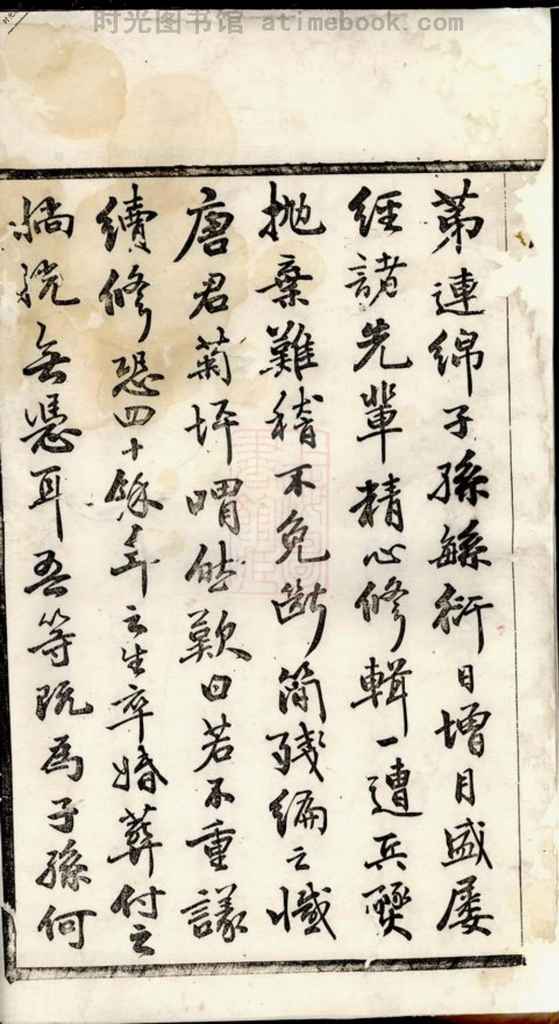 时光图书馆 atimebook.com
第連綿子孫繇衍日增月盛屡
经諸先輩精心修輯一遭兵燹
抛棄難稽不免断简残编之憾
唐君菊坪喟然歎曰若不重議
續修恐四十餘年之生卒婚葬付之
無憑耳吾等既為子孫何